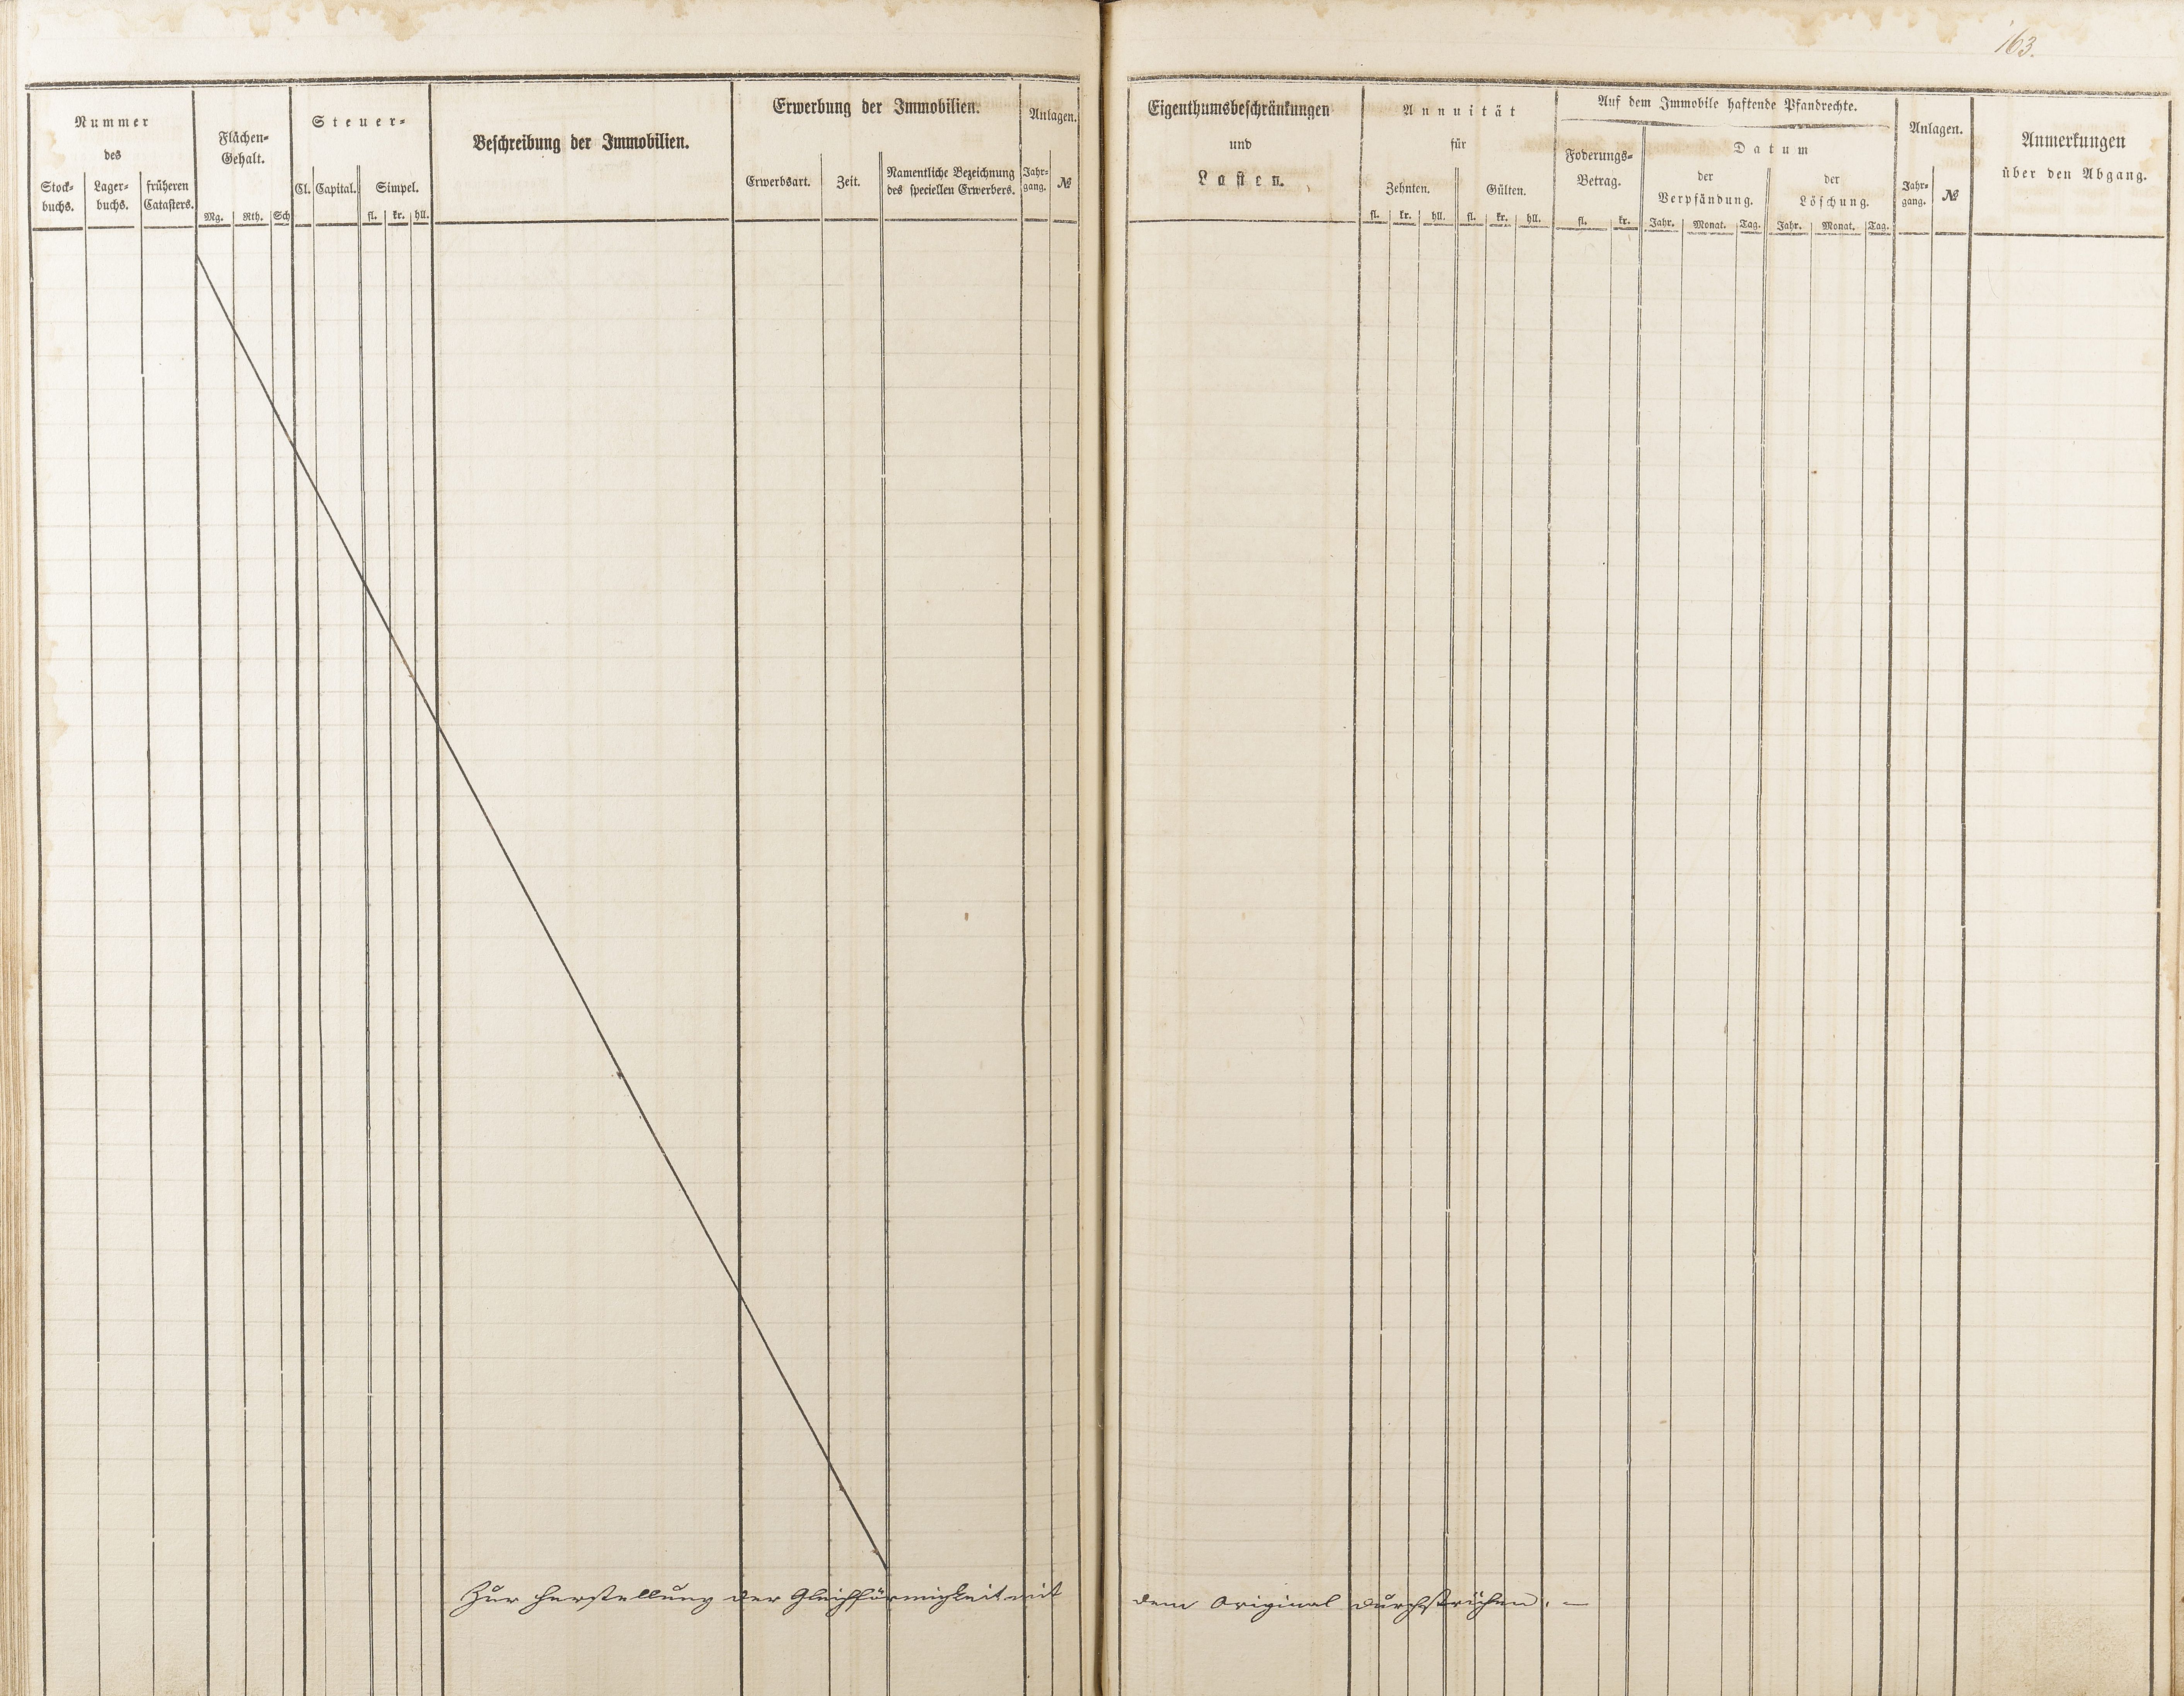 163.
Nummer
des
Stock-
buchs.
Lager-
buchs.
früheren
Catasters.
Flächen-
Gehalt.
Mg. Rth. Sch
Steuer-
Cl. Capital. Simpel.
fl. kr. hll.
Beschreibung der Immobilien.
Erwerbung der Immobilien.
Erwerbsart. Zeit.
Namentliche Bezeichnung
des speciellen Erwerbers.
Anlagen.
Jahr-
gang.
№
Eigenthumsbeschränkungen
und
Lasten.
Annuität
für
Zehnten. Gülten.
fl. kr. hll. fl. kr. hll.
Auf dem Immobile haftende Pfandrechte.
Foderungs-
Betrag.
fl. kr.
Datum
der
Verpfändung.
Jahr. Monat. Tag.
der
Löschung.
Jahr. Monat. Tag.
Anlagen.
Jahr-
gang.
№
Anmerkungen
über den Abgang.
Zur Herstellung der Gleichförmigkeit mit dem Original durchstrichen. —